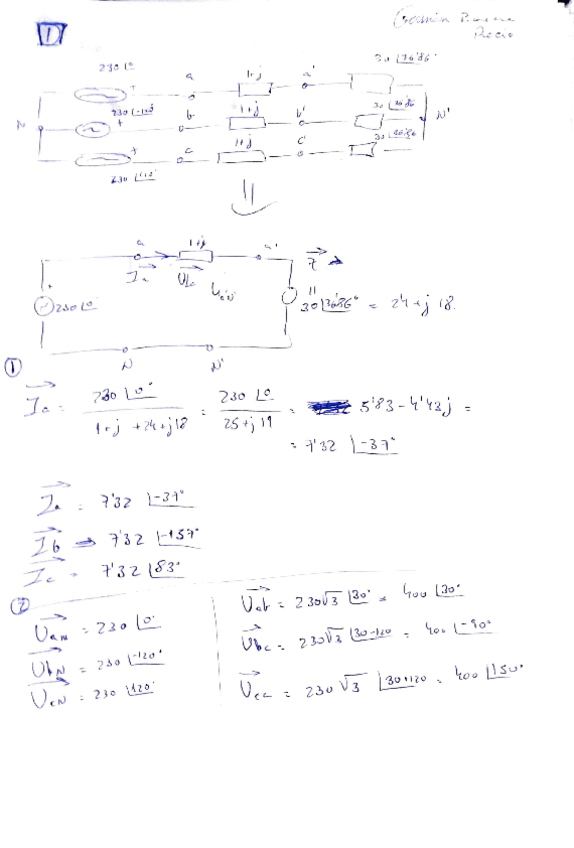 1
230 ∠0
a
1+j
a'
30 ∠36'86
N
230 ∠-120
b
1+j
b'
30 ∠36'86
N'
c
1+j
c'
30 ∠36'86
230 ∠120
a
1+j
a'
Z
Ia
230 ∠0
30 ∠36'86° = 24+j18
N
N'
①
Ia = 230 ∠0° / 1+j+24+j18 = 230 ∠0 / 25+j19 = 5'83-4'43j =
= 7'32 ∠-37°
Ia = 7'32 ∠-37°
Ib → 7'32 ∠-157°
Ic = 7'32 ∠83°
②
UaN = 230 ∠0°
UbN = 230 ∠-120°
UcN = 230 ∠120°
Uab = 230√3 ∠30° = 400 ∠30°
Ubc = 230√3 ∠30-120 = 400 ∠-90°
Uca = 230√3 ∠30+120 = 400 ∠150°